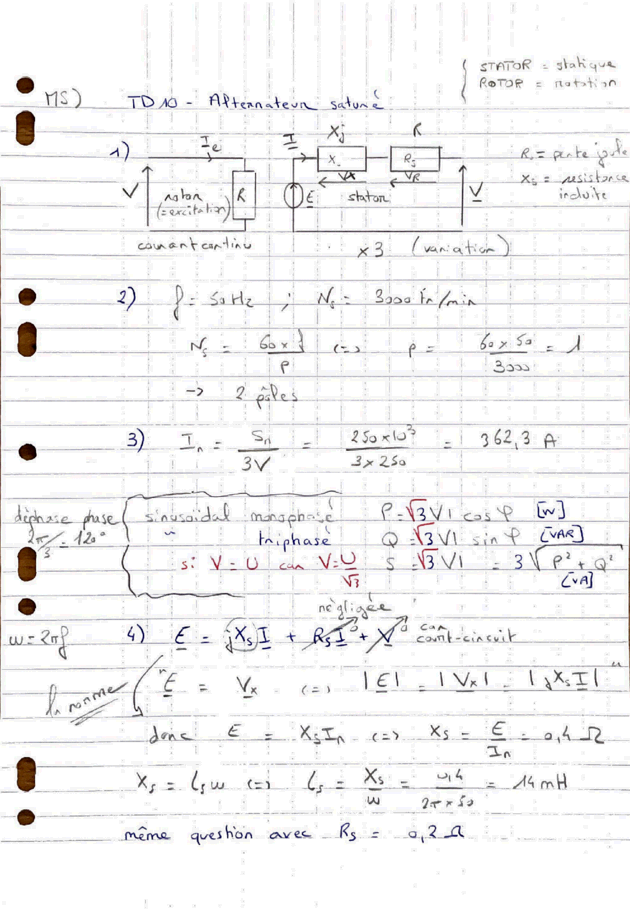 STATOR = statique
ROTOR = rotation
MS) TD 10 - Alternateur saturé
1) Ie Xj R
I Xs Rs
VX VR
V rotor (=excitation) R E stator V
Rs = perte joule
Xs = resistance induite
courant continu × 3 (variation)
2) f = 50 Hz ; Ns = 3000 tr/min
Ns = 60 × f / p <=> p = 60 × 50 / 3000 = 1
-> 2 pôles
3) In = Sn / 3V = 250×10³ / 3×250 = 362,3 A
déphase phase 2π/3 = 120°
sinusoidal monophasé P = √3 V I cos φ [W]
" triphase Q = √3 V I sin φ [VAR]
si V = U car V = U/√3 S = √3 V I = 3 √P² + Q² [VA]
négligée
ω = 2πf 4) E = jXs I + Rs I⁰ + V⁰ car court-circuit
la norme " E = Vx <=> |E| = |Vx| = |jXs I| "
donc E = Xs In <=> Xs = E / In = 0,4 Ω
Xs = ls ω <=> ls = Xs / ω = 0,4 / 2π × 50 = 14 mH
même question avec Rs = 0,2 Ω